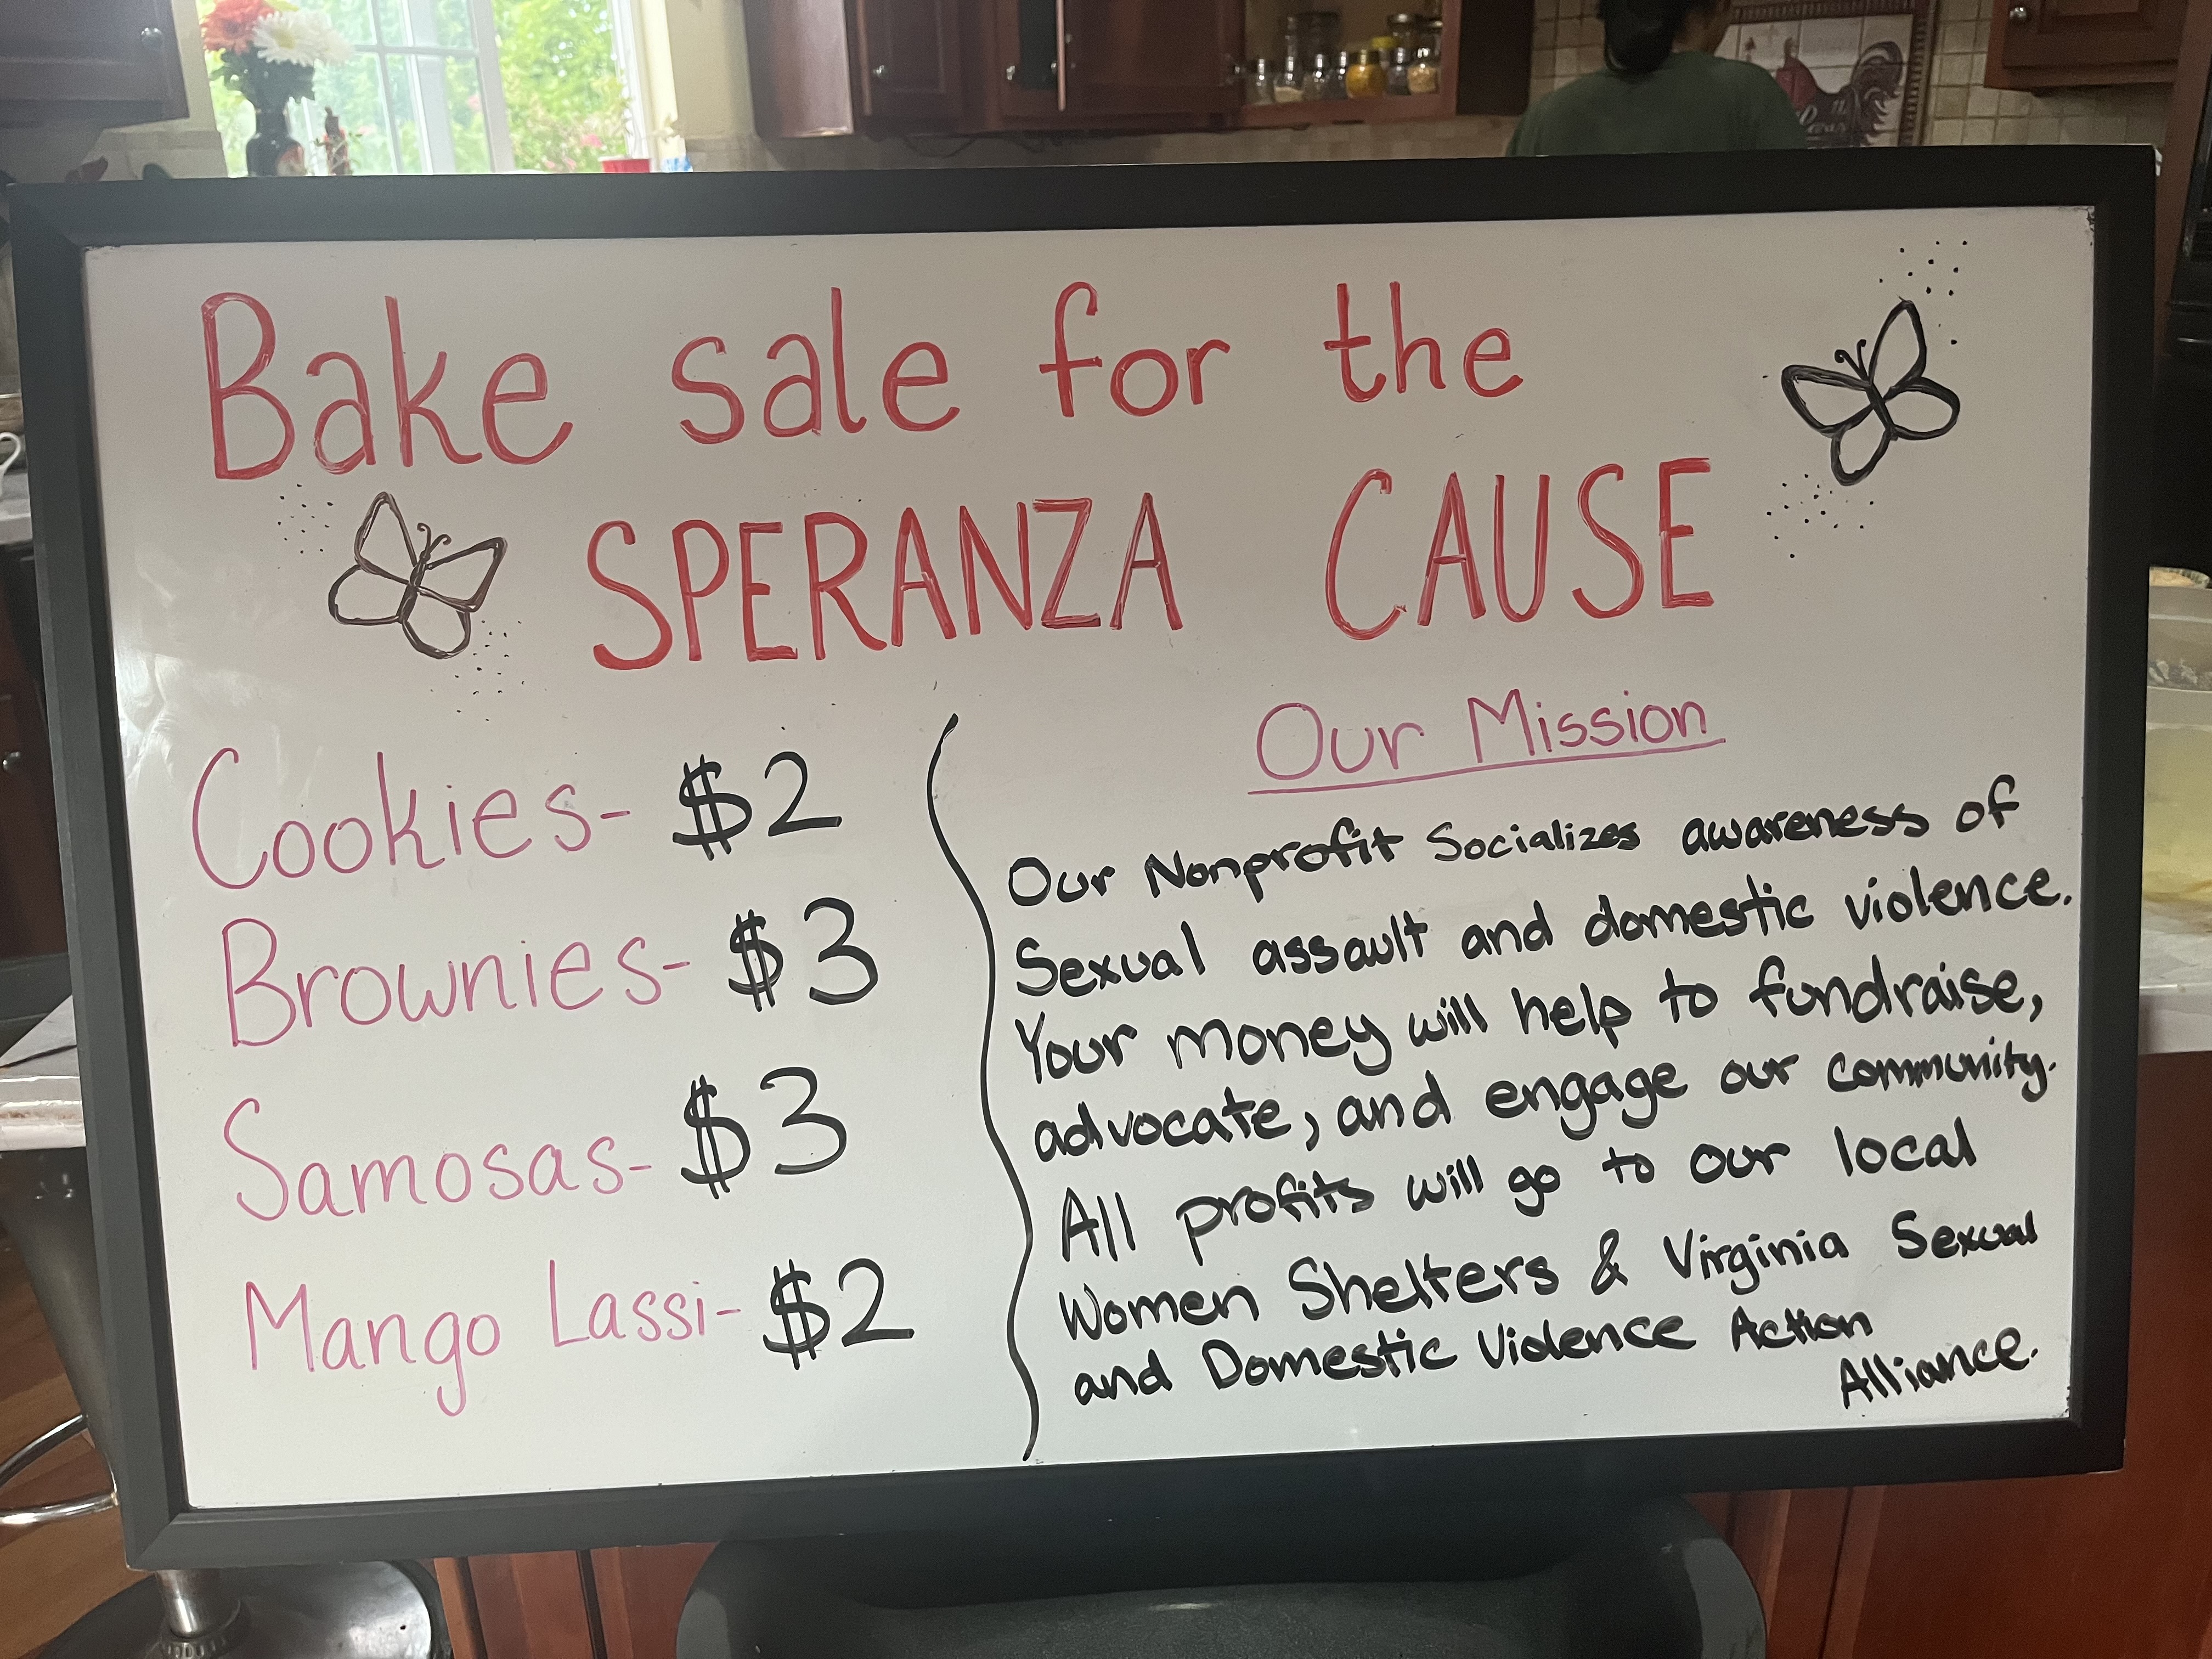 Bake sale for the
SPERANZA CAUSE
Cookies- $2
Brownies- $3
Samosas- $3
Mango Lassi- $2
Our Mission
Our Nonprofit Socializes awareness of
Sexual assault and domestic violence.
Your money will help to fundraise,
advocate, and engage our community.
All profits will go to our local
Women Shelters & Virginia Sexual
and Domestic Violence Action
Alliance.